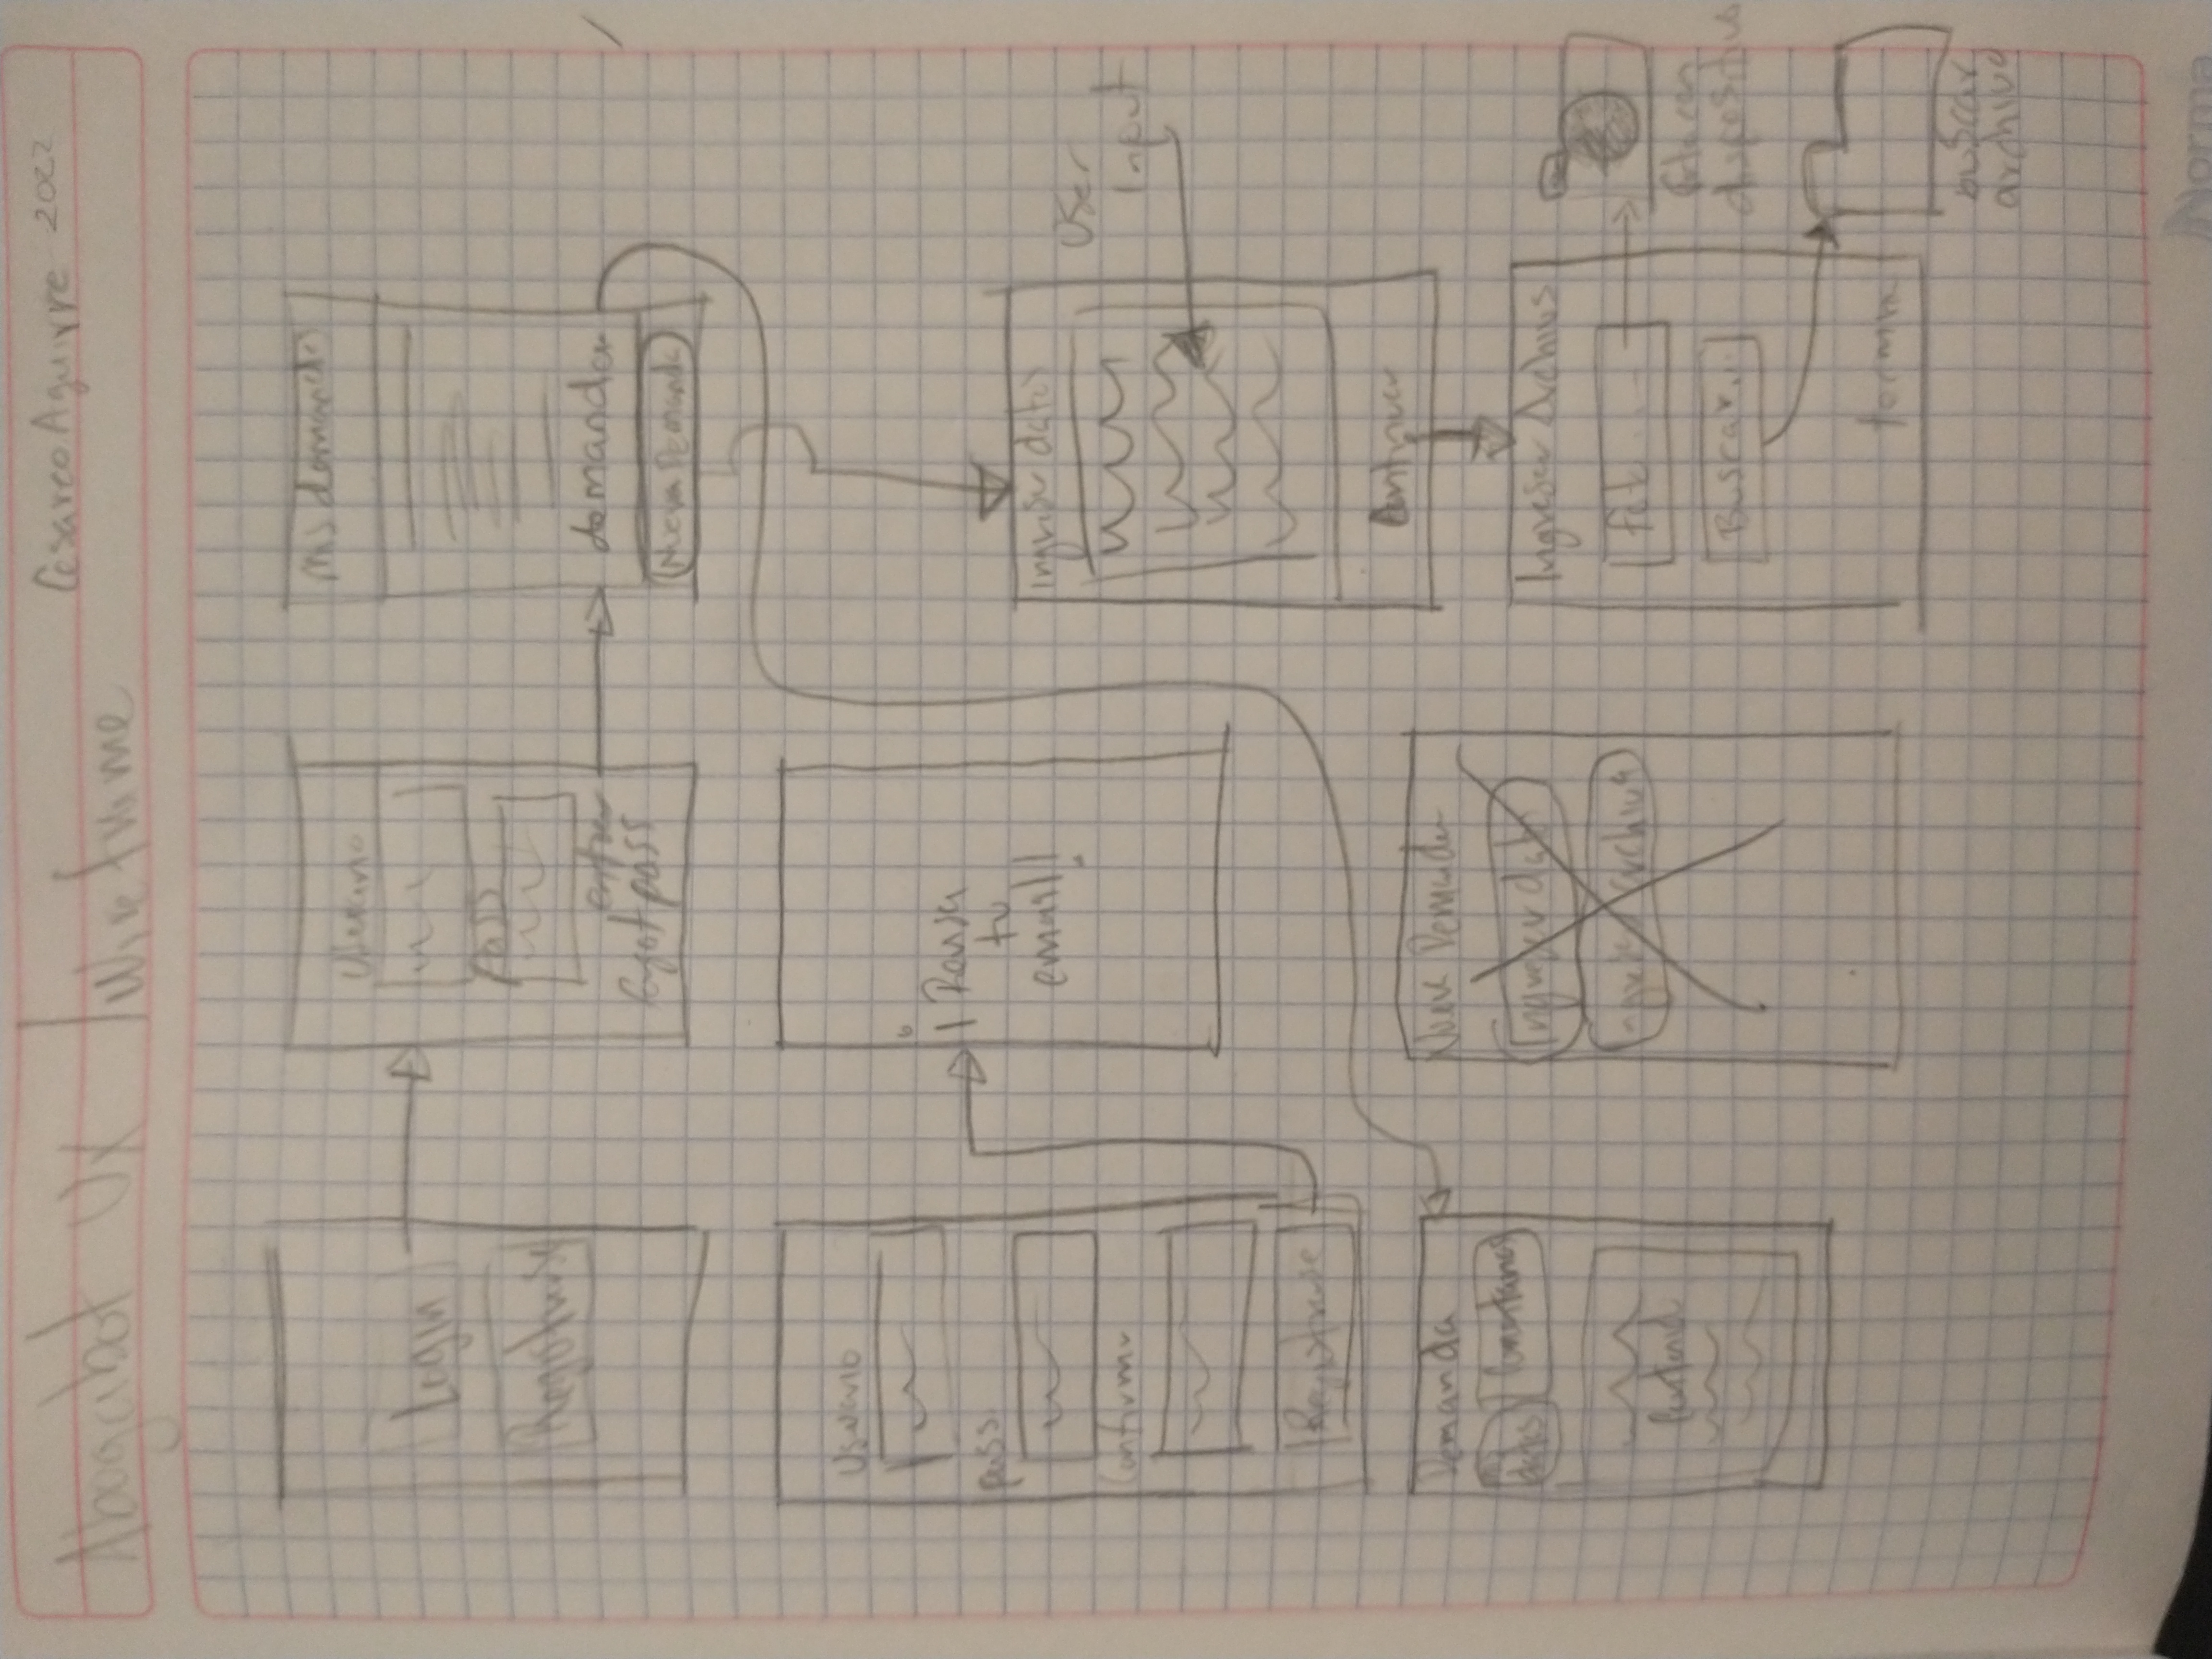 Cesareo Aguirre 2022
Abogabot UX / Wireframe
Login
Registrarse
Usuario
pass
entrar
forgot pass
Mis demandas
demandar
Nueva Demanda
Usuario
pass
Confirmar
Registrarse
¡ Revisa
tu
email!!
Ingresar datos
User
Input
Continuar
Demanda
datos
Comentarios
Nueva Demanda
Ingresar datos
Ingresar archivos
Ingresar Archivos
Buscar...
foto con
dispositivo
buscar
archivo
Norma